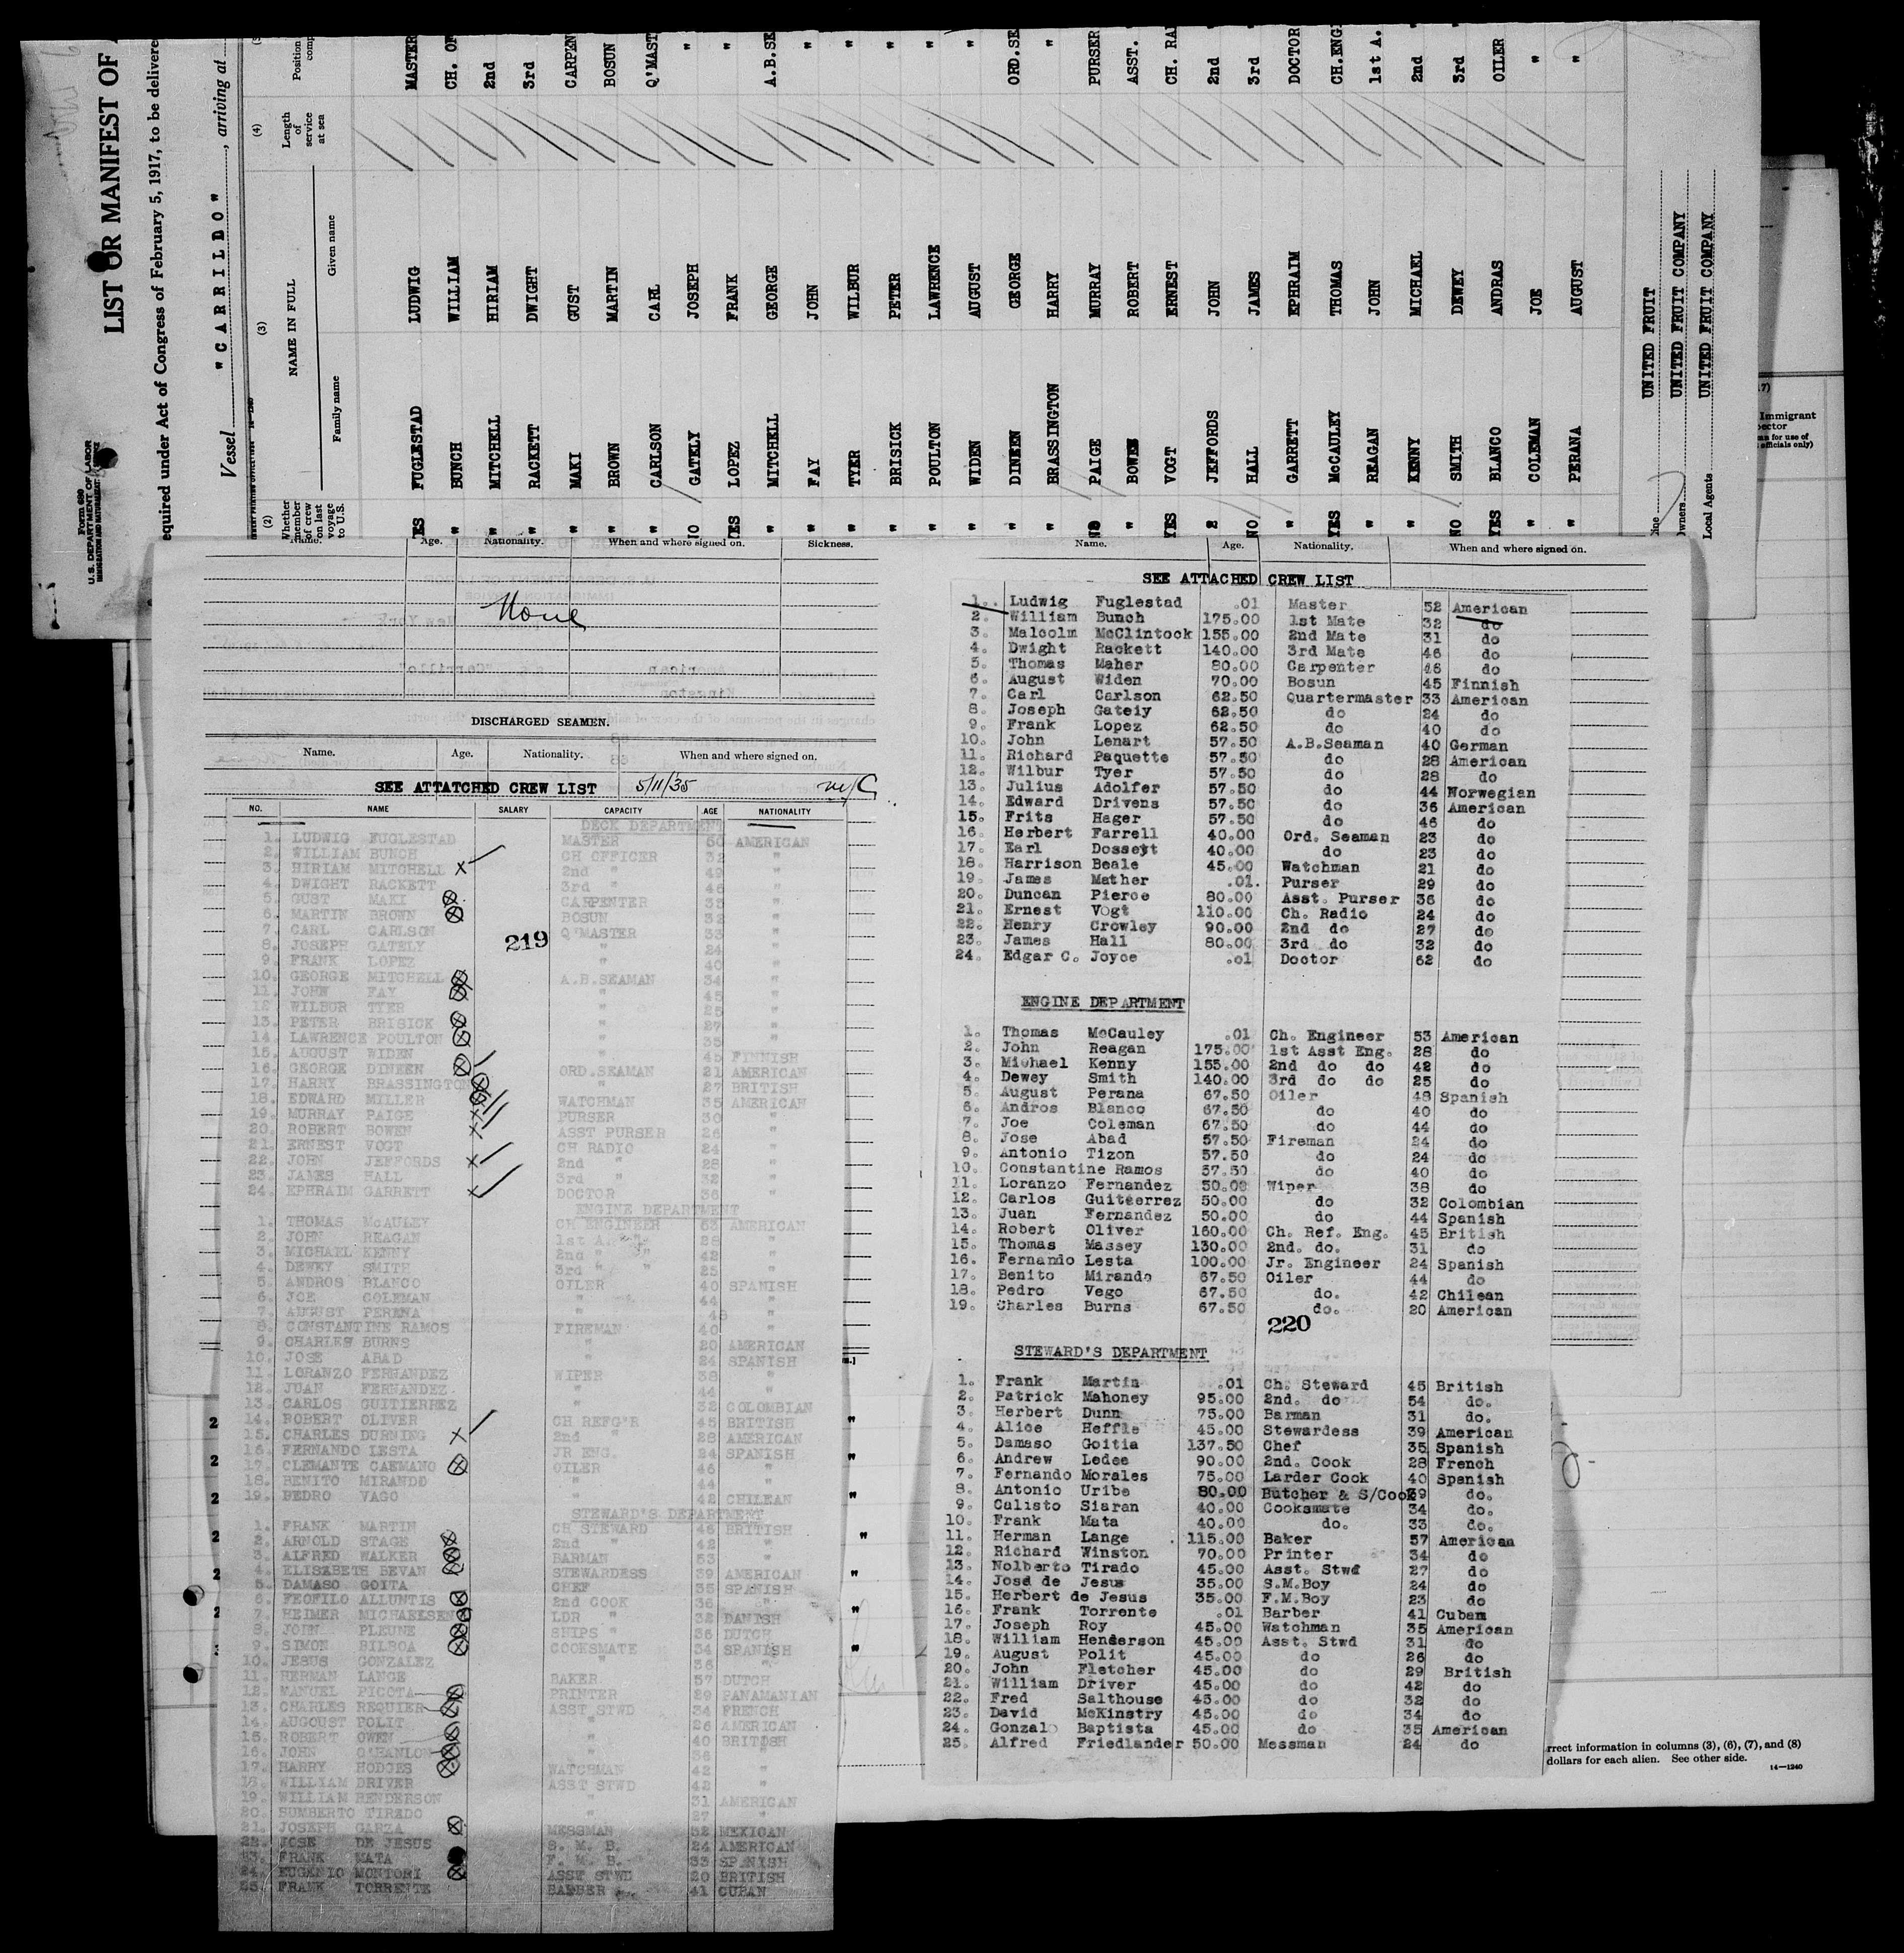 Form 689
U. S. DEPARTMENT OF LABOR
LIST OR MANIFEST OF
equired under Act of Congress of February 5, 1917, to be delivere
Vessel "CARRILDO", arriving at
(2) Whether member of crew on last voyage to U.S.
(3) NAME IN FULL
Family name Given name
(4) Length of service at sea
Position
ES FUGLESTAD LUDWIG MASTER
" BUNCH WILLIAM CH. OF
" MITCHELL HIRIAM 2nd
" RACKETT DWIGHT 3rd
" MAKI GUST CARPEN
" BROWN MARTIN BOSUN
" CARLSON CARL Q'MAST
NO GATELY JOSEPH "
YES LOPEZ FRANK "
" MITCHELL GEORGE A.B.SE
" FAY JOHN "
" TYER WILBUR "
" BRISICK PETER "
" POULTON LAWRENCE "
" WIDEN AUGUST "
" DINEEN GEORGE ORD.SE
" BRASSINGTON HARRY "
NO PAIGE MURRAY PURSER
" BOWEN ROBERT ASST.
YES VOGT ERNEST CH. RA
2 JEFFORDS JOHN 2nd
NO HALL JAMES 3rd
" GARRETT EPHRAIM DOCTOR
YES McCAULEY THOMAS CH.ENG
" REAGAN JOHN 1st A.
" KENNY MICHAEL 2nd "
NO SMITH DEWEY 3rd "
YES BLANCO ANDRAS OILER
" COLEMAN JOE "
" PERANA AUGUST "
UNITED FRUIT
wners UNITED FRUIT COMPANY
Local Agents UNITED FRUIT COMPANY
Immigrant
officials only)
Name. Age. Nationality. When and where signed on. Sickness.
None
DISCHARGED SEAMEN.
Name. Age. Nationality. When and where signed on.
SEE ATTATCHED CREW LIST 5/11/35
NO. NAME SALARY CAPACITY AGE NATIONALITY
DECK DEPARTMENT
1. LUDWIG FUGLESTAD MASTER 50 AMERICAN
2. WILLIAM BUNCH CH OFFICER 32 "
3. HIRIAM MITCHELL X 2nd " 49 "
4. DWIGHT RACKETT 3rd " 46 "
5. GUST MAKI CARPENTER 35 "
6. MARTIN BROWN BOSUN 32 "
7. CARL CARLSON Q'MASTER 33 "
219
8. JOSEPH GATELY " 24 "
9. FRANK LOPEZ " 40 "
10. GEORGE MITCHELL A.B.SEAMAN 34 "
11. JOHN FAY " 45 "
12 WILBUR TYER " 25 "
13. PETER BRISICK " 27 "
14. LAWRENCE POULTON " 35 "
15. AUGUST WIDEN " 45 FINNISH
16. GEORGE DINEEN ORD.SEAMAN 21 AMERICAN
17. HARRY BRASSINGTON " 27 BRITISH
18. EDWARD MILLER WATCHMAN 35 AMERICAN
19. MURRAY PAIGE PURSER 30 "
20. ROBERT BOWEN ASST PURSER 26 "
21. ERNEST VOGT CH RADIO 24 "
22. JOHN JEFFORDS 2nd " 28 "
23. JAMES HALL 3rd " 32 "
24. EPHRAIM GARRETT DOCTOR 36 "
ENGINE DEPARTMENT
1. THOMAS McAULEY CH ENGINEER 53 AMERICAN
2. JOHN REAGAN 1st A. " 28 "
3. MICHAEL KENNY 2nd " " 42 "
4. DEWEY SMITH 3rd " " 25 "
5. ANDROS BLANCO OILER 40 SPANISH
6. JOE COLEMAN " 44 "
7. AUGUST PERENA " 48 "
8. CONSTANTINE RAMOS FIREMAN 40 "
9. CHARLES BURNS " 20 AMERICAN
10. JOSE ABAD " 24 SPANISH
11. LORANZO FERNANDEZ WIPER 38 "
12. JUAN FERNANDEZ " 44 "
13. CARLOS GUITIERREZ " 32 COLOMBIAN
14. ROBERT OLIVER CH REFG'R 45 BRITISH
15. CHARLES DURNING X 2nd " 28 AMERICAN
16. FERNANDO LESTA JR ENG. 24 SPANISH
17. CLEMANTE CAEMANO OILER 46 "
18. BENITO MIRANDO " 44 "
19. PEDRO VAGO " 42 CHILEAN
STEWARD'S DEPARTMENT
1. FRANK MARTIN CH STEWARD 46 BRITISH
2. ARNOLD STAGE 2nd " 42 "
3. ALFRED WALKER BARMAN 53 "
4. ELISABETH BEVAN STEWARDESS 39 AMERICAN
5. DAMASO GOITA CHEF 35 SPANISH
6. FEOFILO ALLUNTIS 2nd COOK 36 "
7. HEIMER MICHAELSEN LDR " 32 DANISH
8. JOHN PLEUNE SHIPS " 36 DUTCH
9. SIMON BILBOA COOKSMATE 34 SPANISH
10. JESUS GONZALEZ " 36 "
11. HERMAN LANGE BAKER 57 DUTCH
12. MANUEL PICOTA PRINTER 29 PANAMANIAN
13. CHARLES REQUIER ASST STWD 34 FRENCH
14. AUGOUST POLIT " 26 AMERICAN
15. ROBERT OWEN " 40 BRITOSH
16. JOHN O'HANLON " 36 "
17. HARRY HODGES WATCHMAN 42 "
18. WILLIAM DRIVER ASST STWD 42 "
19. WILLIAM HENDERSON " 31 AMERICAN
20. HUMBERTO TIRADO " 27 "
21. JOSEPH GARZA MESSMAN 52 MEXICAN
22. JOSE DE JESUS S. M. B. 24 AMERICAN
23. FRANK MATA F. M. B. 33 SPANISH
24. EUGENIO MONTORI ASST STWD 20 BRITISH
25. FRANK TORRENTE BARBER 41 CUBAN
Name. Age. Nationality. When and where signed on.
SEE ATTACHED CREW LIST
1. Ludwig Fuglestad .01 Master 52 American
2. William Bunch 175.00 1st Mate 32 do
3. Malcolm McClintock 155.00 2nd Mate 31 do
4. Dwight Rackett 140.00 3rd Mate 46 do
5. Thomas Maher 80.00 Carpenter 46 do
6. August Widen 70.00 Bosun 45 Finnish
7. Carl Carlson 62.50 Quartermaster 33 American
8. Joseph Gately 62.50 do 24 do
9. Frank Lopez 62.50 do 40 do
10. John Lenart 57.50 A.B.Seaman 40 German
11. Richard Paquette 57.50 do 28 American
12. Wilbur Tyer 57.50 do 28 do
13. Julius Adolfer 57.50 do 44 Norwegian
14. Edward Drivens 57.50 do 36 American
15. Frits Hager 57.50 do 46 do
16. Herbert Farrell 40.00 Ord. Seaman 23 do
17. Earl Dossett 40.00 do 23 do
18. Harrison Beale 45.00 Watchman 21 do
19. James Mather .01. Purser 29 do
20. Duncan Pierce 80.00 Asst. Purser 36 do
21. Ernest Vogt 110.00 Ch. Radio 24 do
22. Henry Crowley 90.00 2nd do 27 do
23. James Hall 80.00 3rd do 32 do
24. Edgar C. Joyce .01 Doctor 62 do
ENGINE DEPARTMENT
1. Thomas McCauley .01 Ch. Engineer 53 American
2. John Reagan 175.00 1st Asst Eng. 28 do
3. Michael Kenny 155.00 2nd do do 42 do
4. Dewey Smith 140.00 3rd do do 25 do
5. August Perana 67.50 Oiler 48 Spanish
6. Andros Blanco 67.50 do 40 do
7. Joe Coleman 67.50 do 44 do
8. Jose Abad 57.50 Fireman 24 do
9. Antonio Tizon 57.50 do 24 do
10. Constantine Ramos 57.50 do 40 do
11. Loranzo Fernandez 50.00 Wiper 38 do
12. Carlos Guiteerrez 50.00 do 32 Colombian
13. Juan Fernandez 50.00 do 44 Spanish
14. Robert Oliver 160.00 Ch. Ref. Eng. 45 British
15. Thomas Massey 130.00 2nd. do. 31 do
16. Fernando Lesta 100.00 Jr. Engineer 24 Spanish
17. Benito Mirando 67.50 Oiler 44 do
18. Pedro Vego 67.50 do. 42 Chilean
19. Charles Burns 67.50 do. 20 American
220
STEWARD'S DEPARTMENT
1. Frank Martin .01 Ch. Steward 45 British
2. Patrick Mahoney 95.00 2nd. do 54 do.
3. Herbert Dunn 75.00 Barman 31 do.
4. Alice Heffle 45.00 Stewardess 39 American
5. Damaso Goitia 137.50 Chef 35 Spanish
6. Andrew Ledee 90.00 2nd. Cook 28 French
7. Fernando Morales 75.00 Larder Cook 40 Spanish
8. Antonio Uribe 80.00 Butcher & S/Cook 39 do.
9. Calisto Siaran 40.00 Cooksmate 34 do.
10. Frank Mata 40.00 do. 33 do.
11. Herman Lange 115.00 Baker 57 American
12. Richard Winston 70.00 Printer 34 do
13. Nolberto Tirado 45.00 Asst. Stwd 27 do
14. José de Jesus 35.00 S.M.Boy 24 do
15. Herbert de Jesus 35.00 F.M.Boy 23 do
16. Frank Torrente .01 Barber 41 Cuban
17. Joseph Roy 45.00 Watchman 35 American
18. William Henderson 45.00 Asst. Stwd 31 do
19. August Polit 45.00 do 26 do
20. John Fletcher 45.00 do 29 British
21. William Driver 45.00 do 42 do
22. Fred Salthouse 45.00 do 32 do
23. David McKinstry 45.00 do 34 do
24. Gonzalo Baptista 45.00 do 35 American
25. Alfred Friedlander 50.00 Messman 24 do
rrect information in columns (3), (6), (7), and (8)
dollars for each alien. See other side.
14—1240